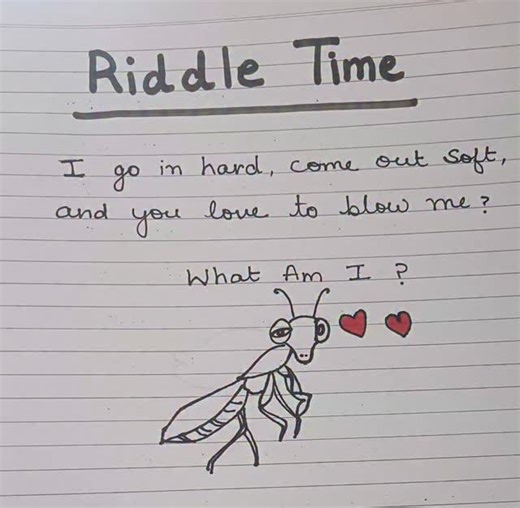 Riddle Time
I go in hard, come out soft,
and you love to blow me?
What Am I ?